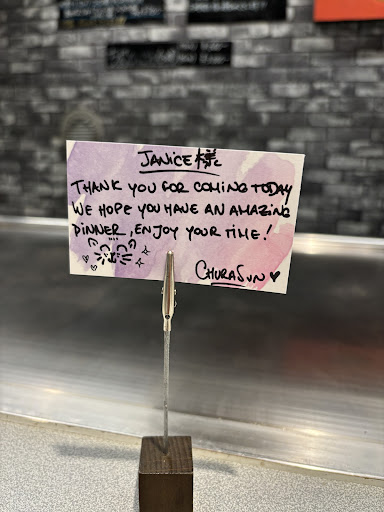 JANICE 様
THANK YOU FOR COMING TODAY
WE HOPE YOU HAVE AN AMAZING
DINNER, ENJOY YOUR TIME!
CHURASUN